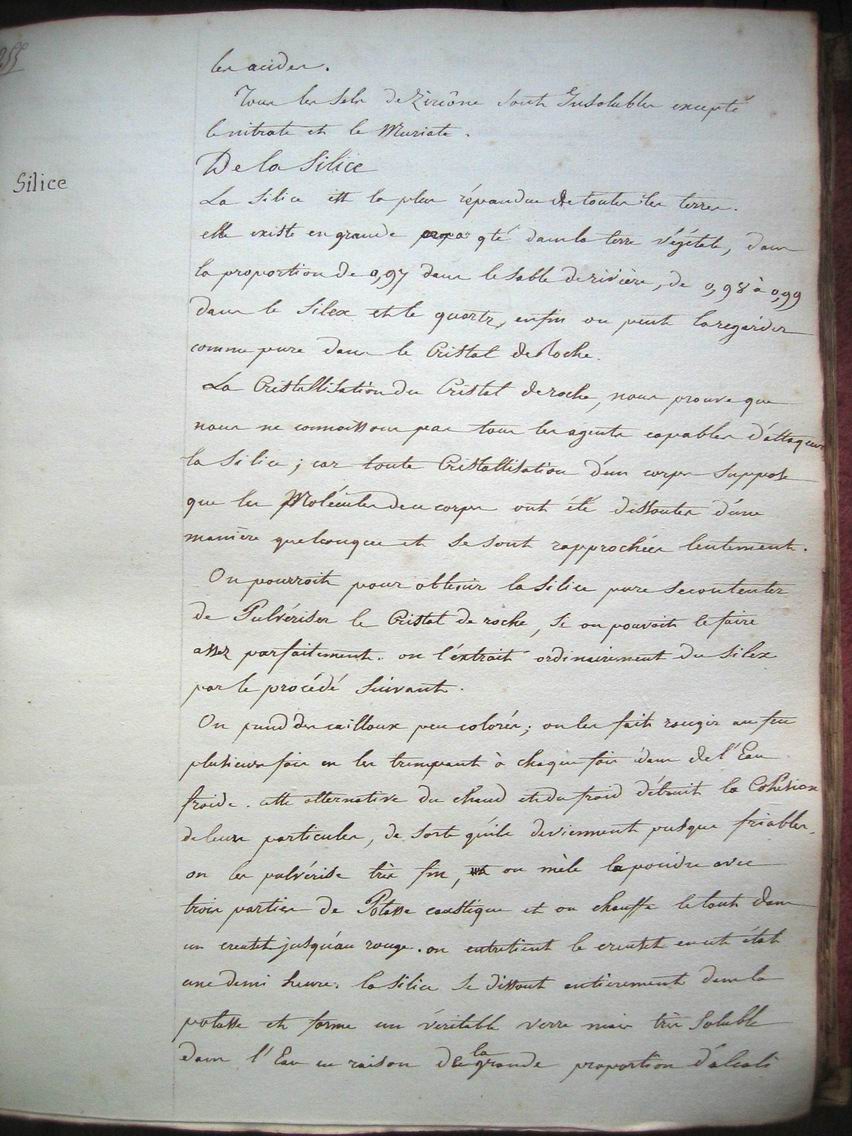 255
les acides.
Tous les Sels de Zircône sont Insolubles excepté
le nitrate et le Muriate.
De la Silice
Silice
La Silice est la plus répandue de toutes les terres.
elle existe en grande qté dans la terre végétale, dans
la proportion de 0,97 dans le sable de rivière, de 0,98 à 0,99
dans le Silex et le quartz, enfin on peut la regarder
comme pure dans le Cristal de Roche.
La Cristallisation du Cristal de roche, nous prouve que
nous ne connoissons pas tous les agents capables d'attaquer
la Silice; car toute Cristallisation d'un corps suppose
que les Molécules de ce corps ont été dissoutes d'une
manière quelconque et se sont rapprochées lentement.
On pourroit pour obtenir la Silice pure se contenter
de Pulvériser le Cristal de roche, si on pouvoit le faire
assez parfaitement. on l'extrait ordinairement du Silex
par le procédé suivant.
On prend des cailloux peu colorés; on les fait rougir au feu
plusieurs fois en les trempant à chaque fois dans de l'Eau
froide. cette alternative du chaud et du froid détruit la Cohésion
de leurs particules, de sorte qu'ils deviennent presque friables.
on les pulvérise très fin, on mêle la poudre avec
trois parties de Potasse caustique et on chauffe le tout dans
un creuset jusqu'au rouge. on entretient le creuset en cet état
une demi heure. la Silice se dissout entièrement dans la
potasse et forme un véritable verre mais très soluble
dans l'Eau en raison de la grande proportion d'alcali